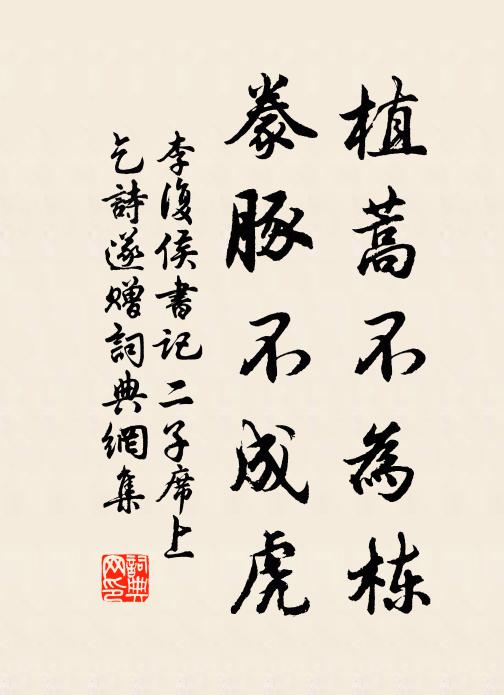 植蒿不為棟
豢豚不成虎
李復侯書記二子席上
乞詩遂贈詞典網集
詞典網印